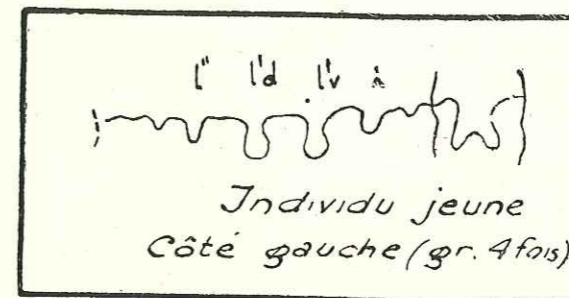 l" l'd l'v
Individu jeune
Côté gauche (gr. 4 fois)